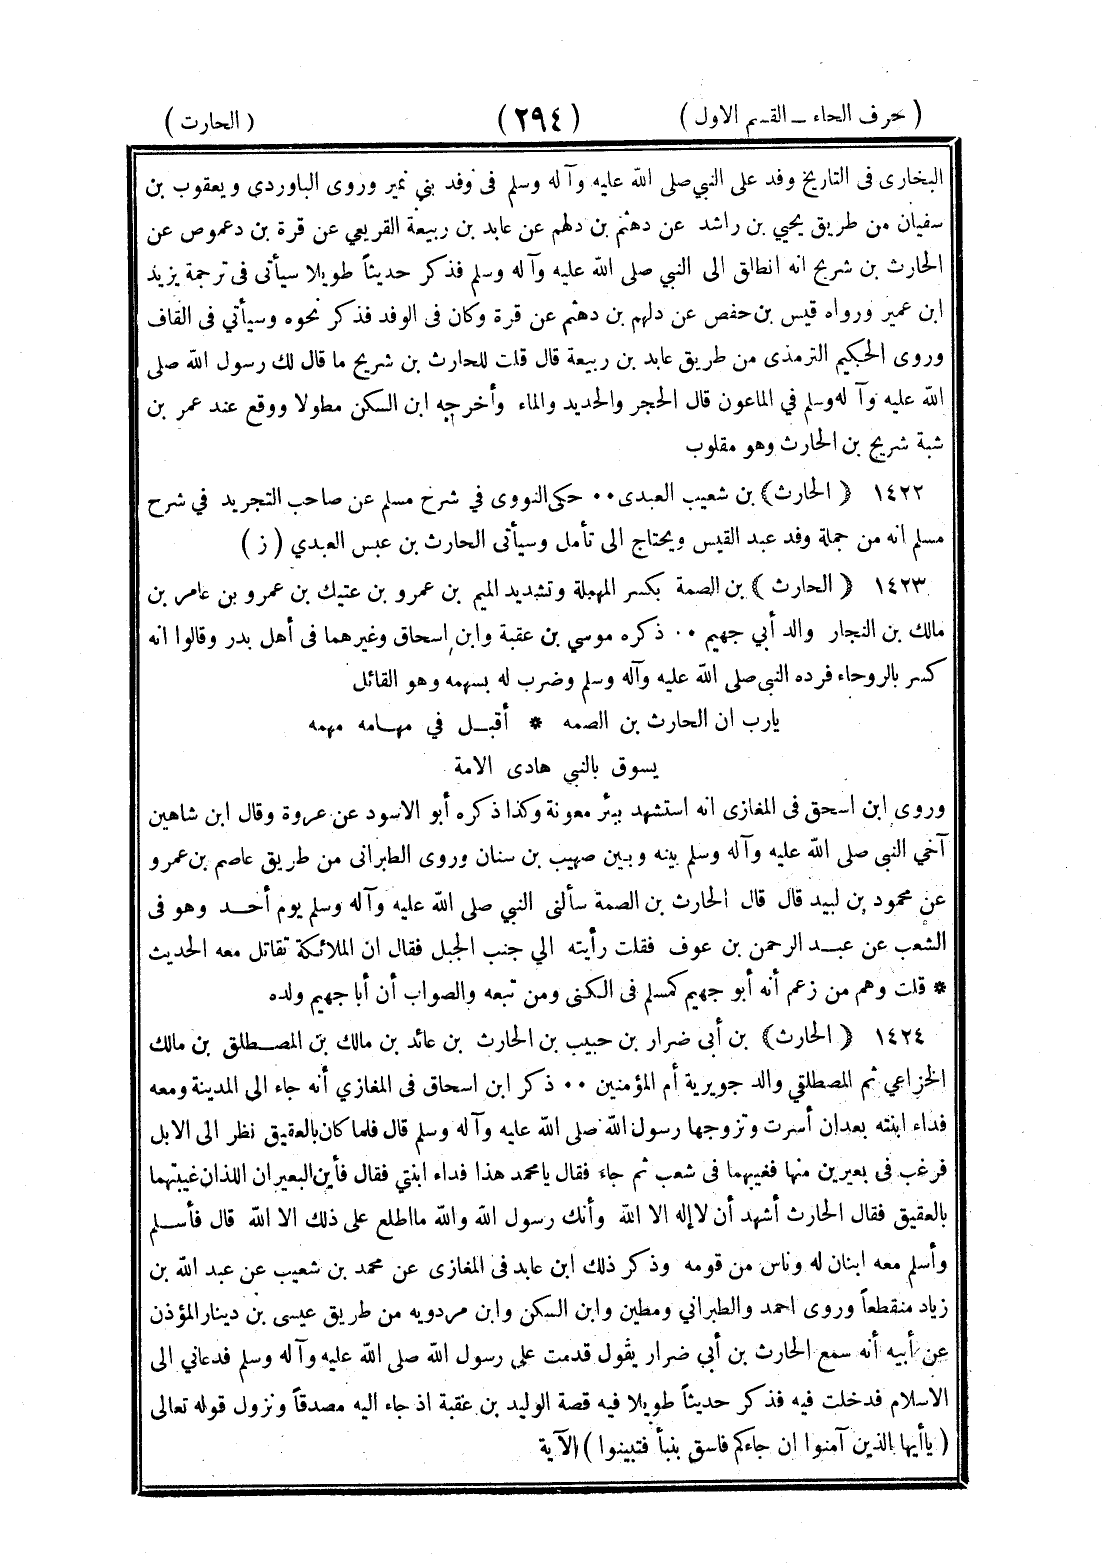 ( حرف الحاء ــ القسم الاول ) (٢٩٤) ( الحارث )
البخارى فى التاريخ وفد على النبي صلى الله عليه وآله وسلم فى وفد بني نمير وروى الباوردي ويعقوب بن
سفيان من طريق يحيي بن راشد عن دهثم بن دلهم عن عايد بن ربيعة القريعي عن قرة بن دعموص عن
الحارث بن شريح انه انطالق الى النبي صلى الله عليه وآله وسلم فذكر حديثاً طويلا سيأتى فى ترجمة يزيد
ابن عمير ورواه قيس بن حفص عن دلهم بن دهثم عن قرة وكان فى الوفد فذكر نحوه وسيأتي فى القاف
وروى الحكيم الترمذى من طريق عايد بن ربيعة قال قلت للحارث بن شريح ما قال لك رسول الله صلى
الله عليه وآله وسلم في الماعون قال الحجر والحديد والماء وأخرجه ابن السكن مطولا ووقع عند عمر بن
شبة شريح بن الحارث وهو مقلوب
١٤٢٢ ﴿ الحارث﴾ بن شعيب العبدى ٠٠ حكى النووى في شرح مسلم عن صاحب التجريد في شرح
مسلم انه من جملة وفد عبد القيس ويحتاج الى تأمل وسيأتى الحارث بن عبس العبدي ( ز )
١٤٢٣ ﴿ الحارث ﴾ بن الصمة بكسر المهملة وتشديد الميم بن عمرو بن عتيك بن عمرو بن عامر بن
مالك بن النجار والد أبي جهيم ٠٠ ذكره موسي بن عقبة وابن اسحاق وغيرهما فى أهل بدر وقالوا انه
كسر بالروحاء فرده النبي صلى الله عليه وآله وسلم وضرب له بسهمه وهو القائل
يارب ان الحارث بن الصمه * أقبل في مهامه مهمه
يسوق بالنبي هادى الامة
وروى ابن اسحق فى المغازى انه استشهد ببئر معونة وكذا ذكره أبو الاسود عن عروة وقال ابن شاهين
آخي النبي صلى الله عليه وآله وسلم بينه وبين صهيب بن سنان وروى الطبرانى من طريق عاصم بن عمرو
عن محمود بن لبيد قال قال الحارث بن الصمة سألنى النبي صلى الله عليه وآله وسلم يوم أحد وهو فى
الشعب عن عبد الرحمن بن عوف فقلت رأيته الي جنب الجبل فقال ان الملائكة تقاتل معه الحديث
* قلت وهم من زعم أنه أبو جهيم كمسلم فى الكنى ومن تبعه والصواب أن أبا جهيم ولده
١٤٢٤ ﴿ الحارث﴾ بن أبى ضرار بن حبيب بن الحارث بن عائد بن مالك بن المصطلق بن مالك
الخزاعي ثم المصطلقي والد جويرية أم المؤمنين ٠٠ ذكر ابن اسحاق فى المغازي أنه جاء الى المدينة ومعه
فداء ابنته بعد ان أسرت وتزوجها رسول الله صلى الله عليه وآله وسلم قال فلما كان بالعقيق نظر الى الابل
فرغب فى بعيرين منها فغيبهما فى شعب ثم جاء فقال يامحمد هذا فداء ابنتي فقال فأين البعيران اللذان غيبتهما
بالعقيق فقال الحارث أشهد أن لاإله الا الله وأنك رسول الله والله مااطلع على ذلك الا الله قال فأسلم
وأسلم معه ابنان له وناس من قومه وذكر ذلك ابن عابد فى المغازى عن محمد بن شعيب عن عبد الله بن
زياد منقطعاً وروى احمد والطبراني ومطين وابن السكن وابن مردويه من طريق عيسى بن دينار المؤذن
عن أبيه أنه سمع الحارث بن أبي ضرار يقول قدمت على رسول الله صلى الله عليه وآله وسلم فدعاني الى
الاسلام فدخلت فيه فذكر حديثاً طويلا فيه قصة الوليد بن عقبة اذ جاء اليه مصدقاً ونزول قوله تعالى
( ياأيها الذين آمنوا ان جاءكم فاسق بنبأ فتبينوا ) الآية